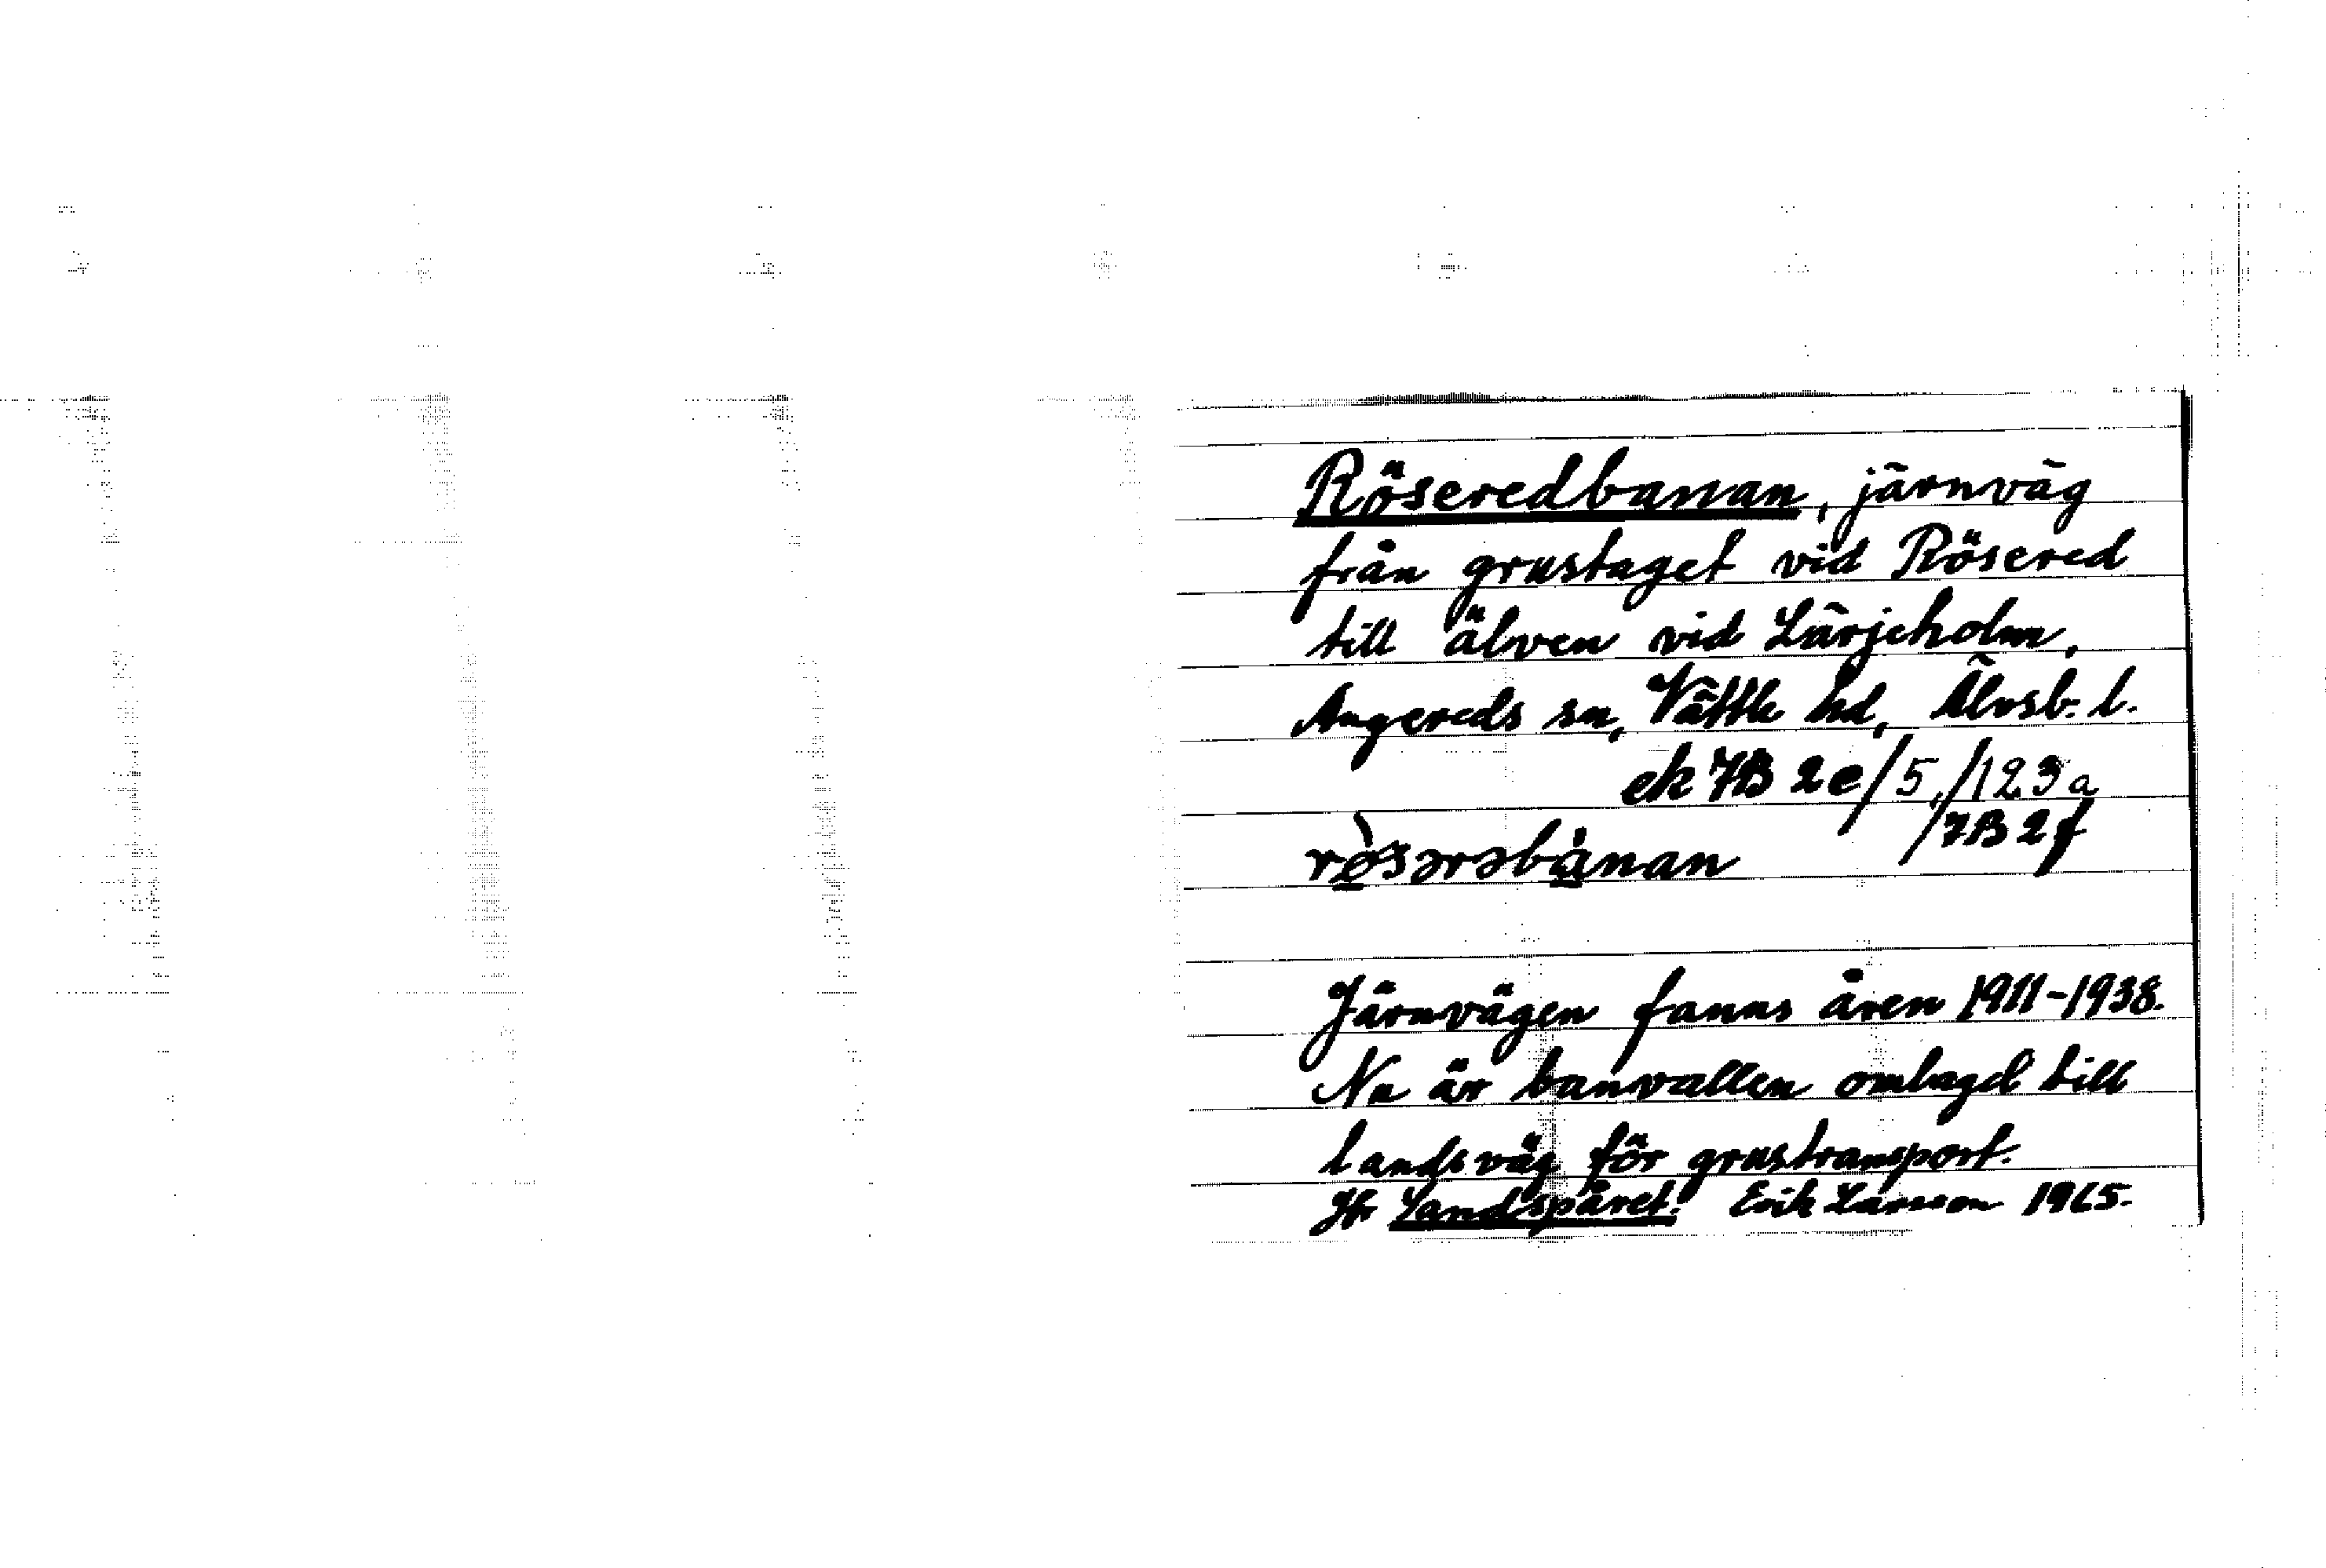 Röseredbanan, järnväg
från grustaget vid Rösered
till älven vid Lärjeholm,
Angereds sn, Vättle hd, Älvsb. l.
ek 7B 2e/5,/123a
/7B 2f
rö̀sərəbȧnan
Järnvägen fanns åren 1911-1938.
Nu är banvallen omlagd till
landsväg för grustransport.
Jfr Sandspåret! Erik Larsson 1965.